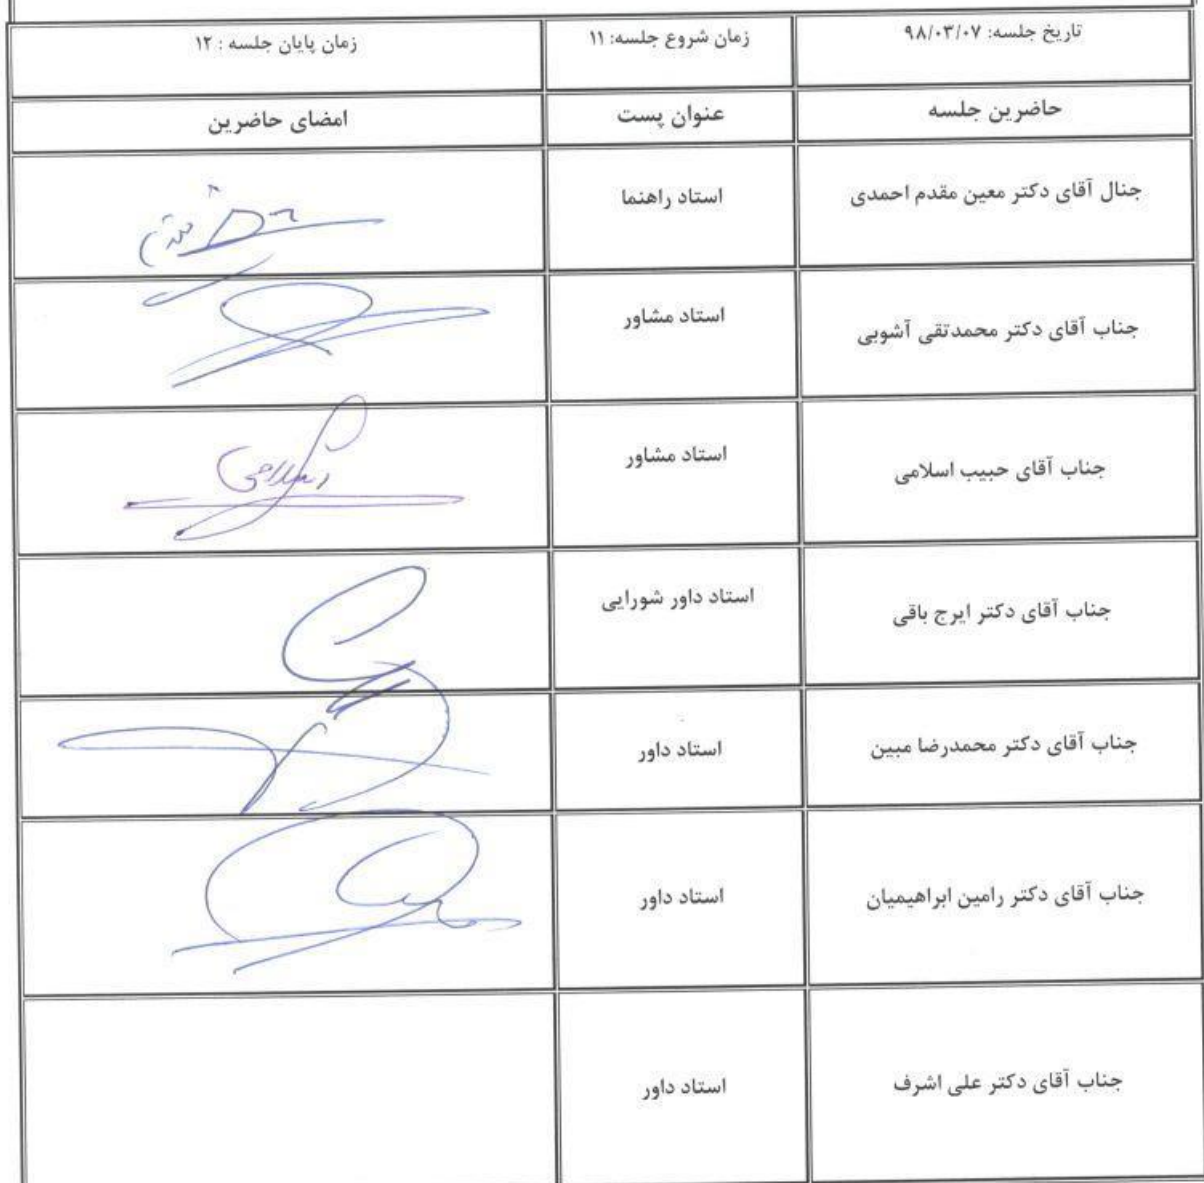 تاریخ جلسه: ۹۸/۰۳/۰۷ زمان شروع جلسه: ۱۱ زمان پایان جلسه : ۱۲
حاضرین جلسه عنوان پست امضای حاضرین
جنال آقای دکتر معین مقدم احمدی استاد راهنما
جناب آقای دکتر محمدتقی آشوبی استاد مشاور
جناب آقای حبیب اسلامی استاد مشاور اسلامی
جناب آقای دکتر ایرج باقی استاد داور شورایی
جناب آقای دکتر محمدرضا مبین استاد داور
جناب آقای دکتر رامین ابراهیمیان استاد داور
جناب آقای دکتر علی اشرف استاد داور